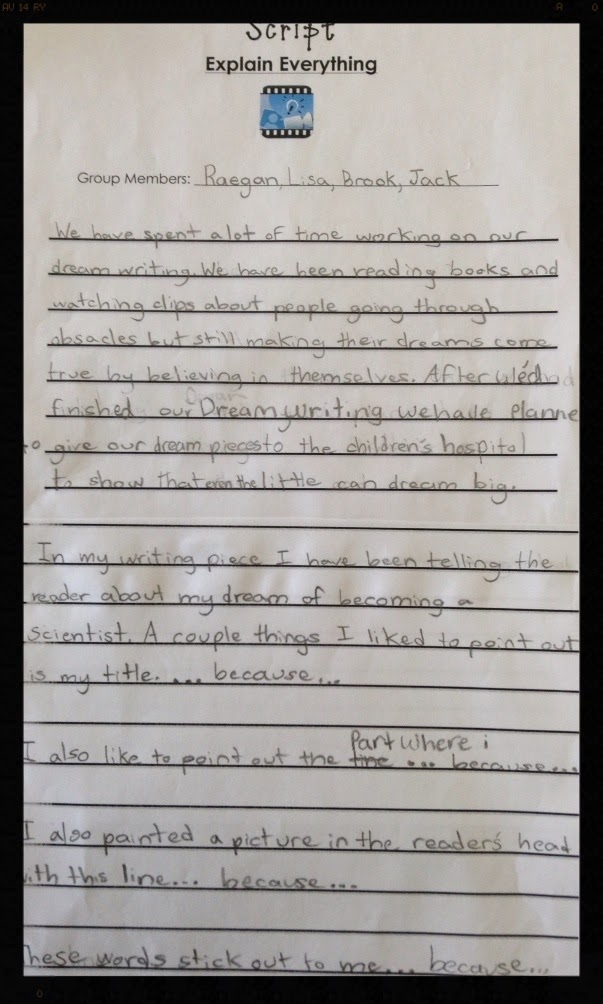 Script
Explain Everything
Group Members: Raegan, Lisa, Brook, Jack
We have spent a lot of time working on our
dream writing. We have been reading books and
watching clips about people going through
obsacles but still making their dreams come
true by believing in themselves. After
finished our Dream writing we have planne
to give our dream pieces to the children's hospital
to show that even the little can dream big.
In my writing piece I have been telling the
reader about my dream of becoming a
scientist. A couple things I liked to point out
is my title. ... because...
part where i
I also like to point out the line ... because...
I also painted a picture in the reader's head
ith this line... because...
hese words stick out to me... because...